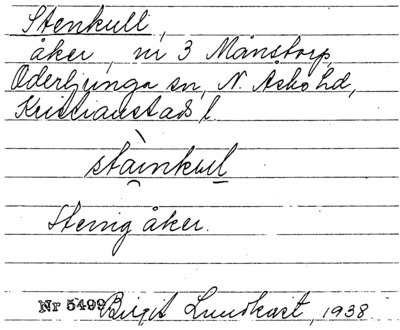 Stenkull,
åker, nr 3 Månstorp,
Oderljunga sn, N. Åsbo hd,
Kristianstads l.
stàinkul
Stenig åker.
Nr 5499 Birgit Lundkvist, 1938